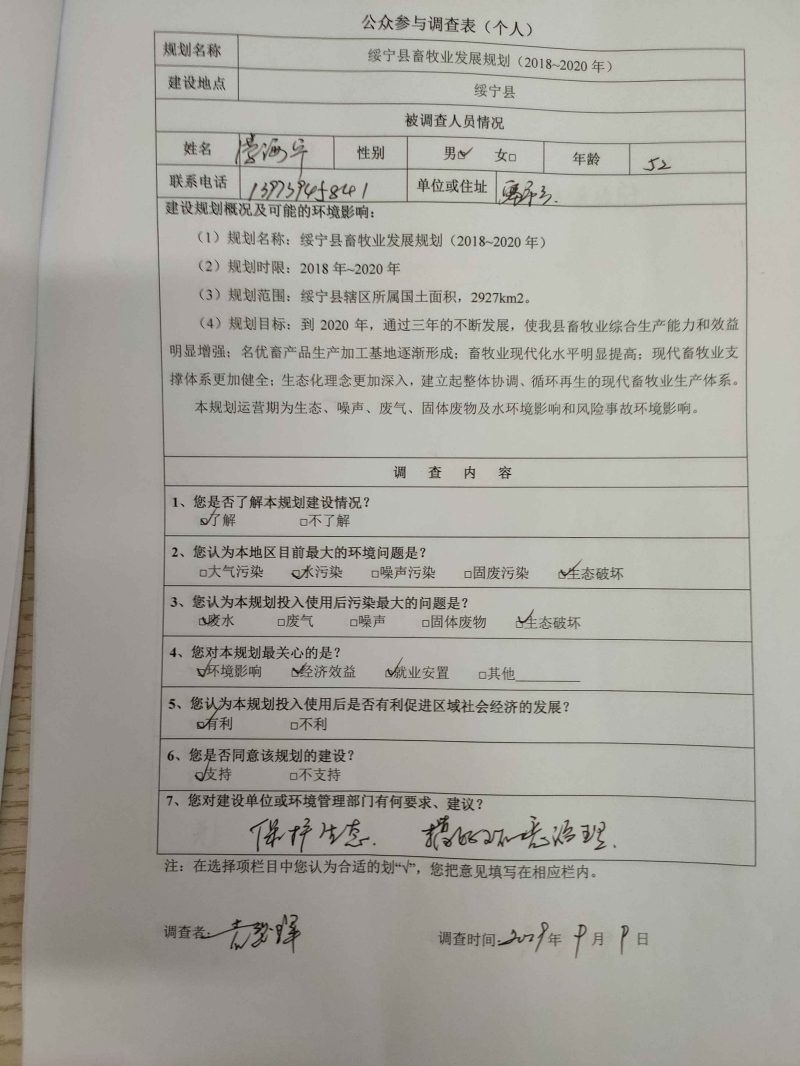 公众参与调查表（个人）
规划名称 绥宁县畜牧业发展规划（2018~2020 年）
建设地点 绥宁县
被调查人员情况
姓名 性别 男☑ 女□ 年龄 52
联系电话 13973945841 单位或住址
建设规划概况及可能的环境影响：
（1）规划名称：绥宁县畜牧业发展规划（2018~2020 年）
（2）规划时限：2018 年~2020 年
（3）规划范围：绥宁县辖区所属国土面积，2927km2。
（4）规划目标：到 2020 年，通过三年的不断发展，使我县畜牧业综合生产能力和效益
明显增强；名优畜产品生产加工基地逐渐形成；畜牧业现代化水平明显提高；现代畜牧业支
撑体系更加健全；生态化理念更加深入，建立起整体协调、循环再生的现代畜牧业生产体系。
本规划运营期为生态、噪声、废气、固体废物及水环境影响和风险事故环境影响。
调 查 内 容
1、您是否了解本规划建设情况？
☑了解 □不了解
2、您认为本地区目前最大的环境问题是？
□大气污染 ☑水污染 □噪声污染 □固废污染 ☑生态破坏
3、您认为本规划投入使用后污染最大的问题是？
☑废水 □废气 □噪声 □固体废物 ☑生态破坏
4、您对本规划最关心的是？
☑环境影响 ☑经济效益 ☑就业安置 □其他________
5、您认为本规划投入使用后是否有利促进区域社会经济的发展？
☑有利 □不利
6、您是否同意该规划的建设？
☑支持 □不支持
7、您对建设单位或环境管理部门有何要求、建议？
保护生态. 搞好环境治理.
注：在选择项栏目中您认为合适的划“√”，您把意见填写在相应栏内。
调查者： 调查时间: 2019 年 9 月 9 日